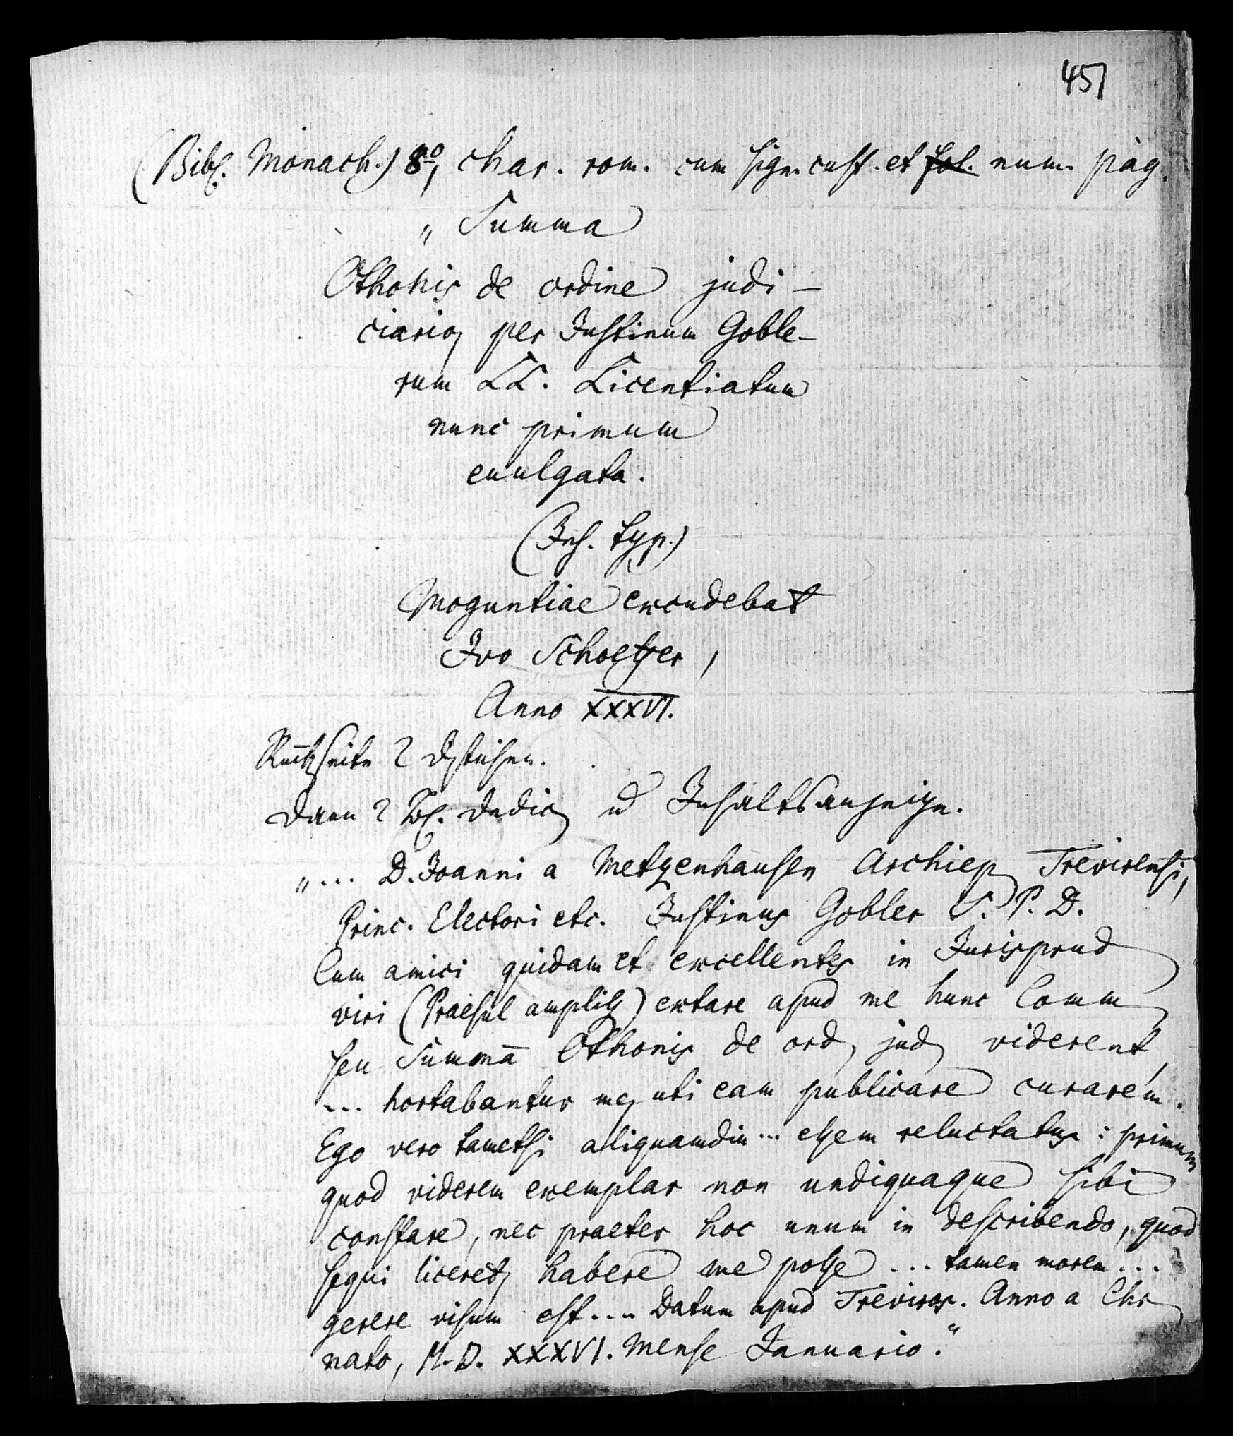 451
(Bibl. Monach.) 8vo, char. rom. cum sign. cust. et fol. num. pag.
„Summa
Othonis de ordine judi-
ciario, per Justinum Goble-
rum LL. Licentiatum
nunc primum
euulgata.
(Ins. typ.)
Moguntiae excudebat
Ivo Schoeffer,
Anno XXXVI.
Rückseite 2 Distichen.
Dann 2 Bl. Dedic. u Inhaltsanzeige.
„... D. Joanni a Metzenhausen Archiep Trevirensi,
Princ. Electori etc. Justinus Gobler S. P. D.
Cum amici quidam et excellentes in Jurisprud
viri (Praesul ampliss) extare apud me hunc Comm
seu Summā Othonis de ord, jud, viderent,
... hortabantur me, uti eam publicare curarem.
Ego vero tametsi aliquamdiu ... essem reluctatus: primum
quod viderem exemplar non undiquaque sibi
constare, nec praeter hoc unum in describendo, quod
sequi liceret, habere me posse ... tamen morem ...
gerere visum est .... Datum apud Treviros. Anno a Chr
nato, M.D. XXXVI. Mense Januario."